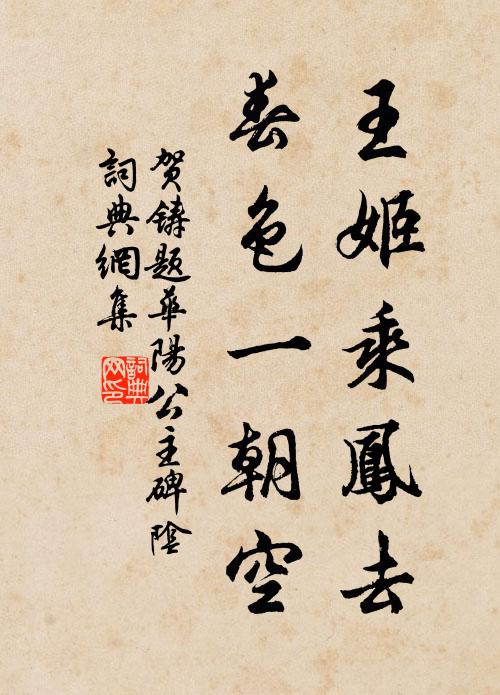 王姬乘鳳去
春色一朝空
贺鑄题華陽公主碑陰
詞典網集
詞典
网印